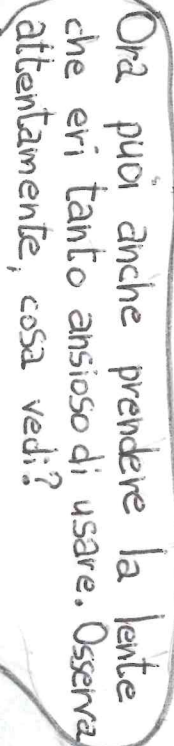 Ora puoi anche prendere la lente
che eri tanto ansioso di usare. Osserva
attentamente, cosa vedi?